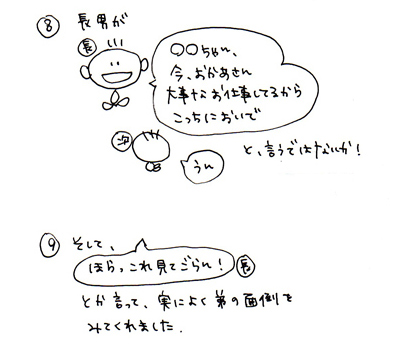 ⑧ 長男が
長
○○ちゃん、
今、おかあさん
大事なお仕事してるから
こっちにおいで
次
うん
と、言うではないか!
⑨ そして、
ほらっこれ見てごらん! 長
とか言って、実によく弟の面倒を
みてくれました.